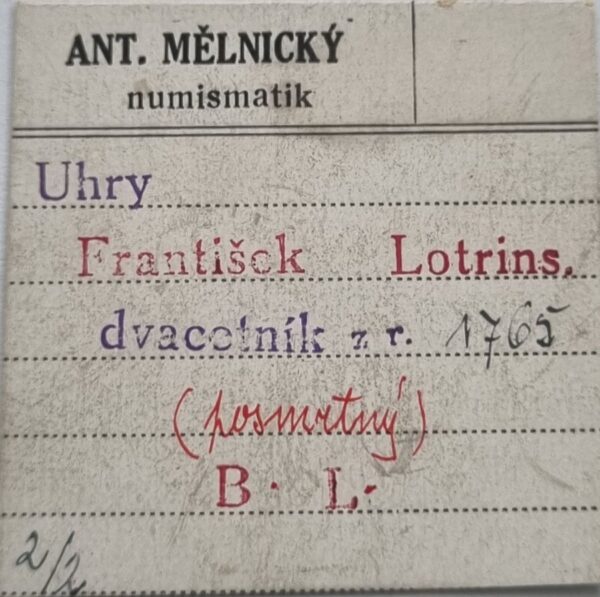 ANT. MĚLNICKÝ
numismatik
Uhry
František Lotrins.
dvacetník z r. 1765
(posmrtný)
B. L.
2/2